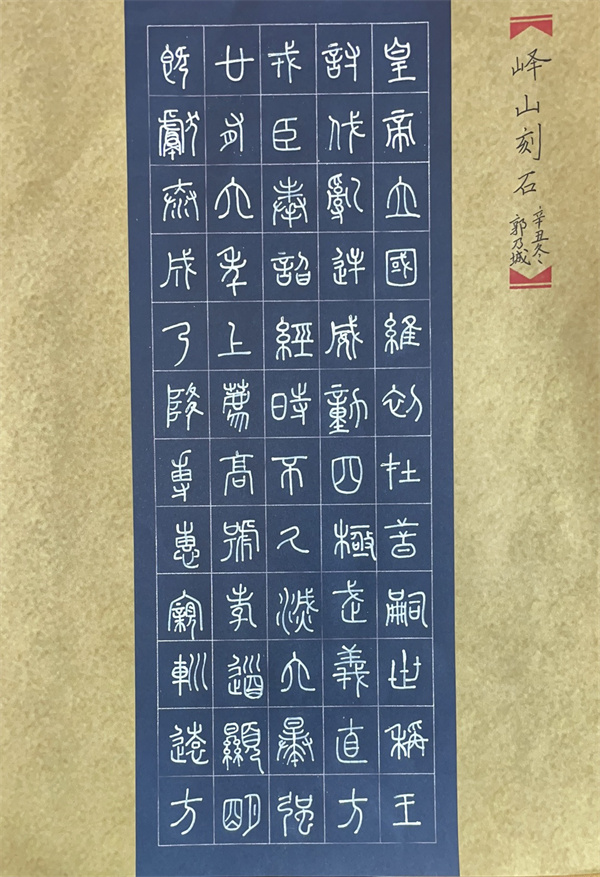 峄山刻石
辛丑冬
郭乃城
皇帝立國維初在昔嗣世稱王
討伐亂逆威動四極武義直方
戎臣奉詔經時不久滅六暴强
廿有六年上薦高號孝道顯明
既獻泰成乃降專惠親巡遠方